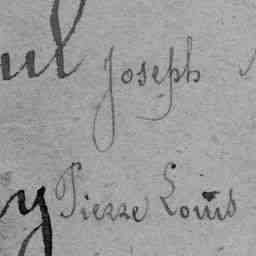 ul Joseph
y Pierre Louis